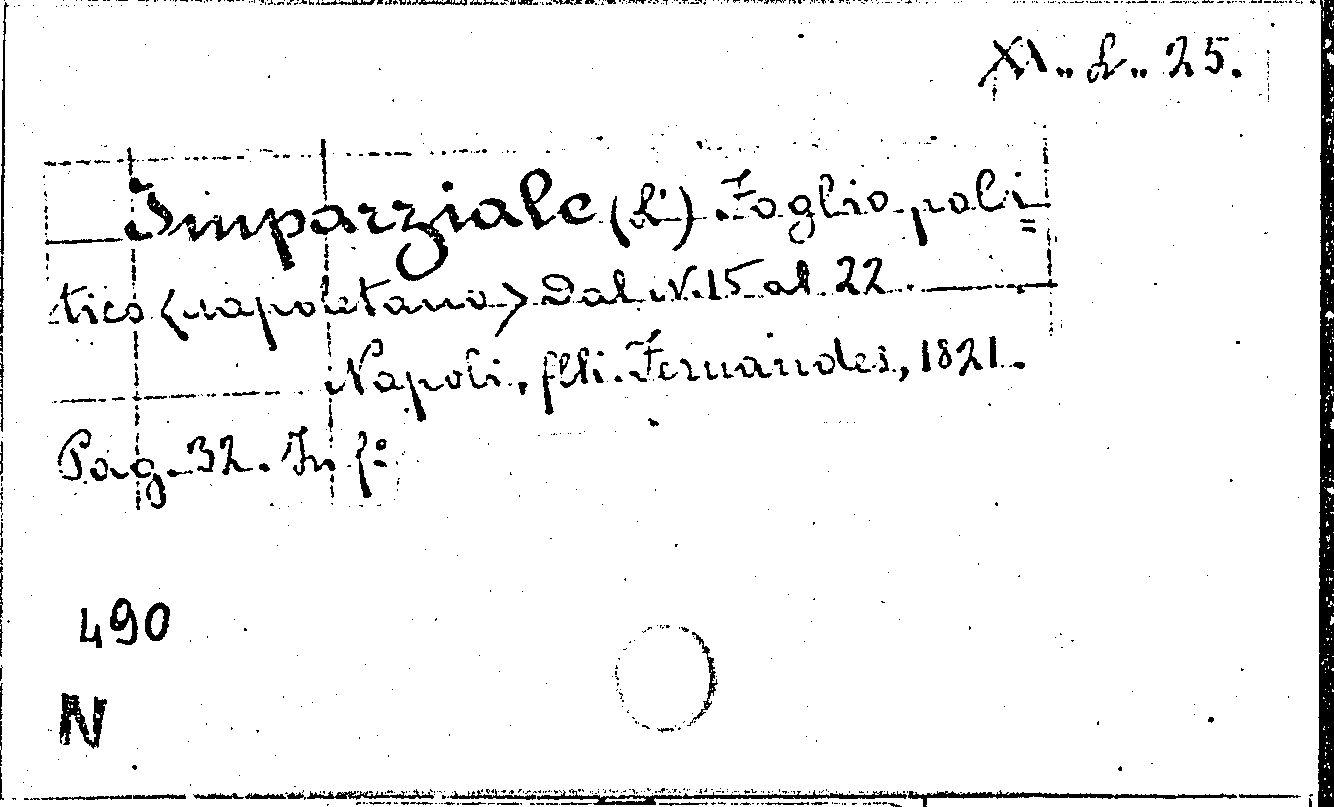 XI. L. 25.
Imparziale (L') Foglio poli=
tico (napoletano) Dal N. 15 al 22.
Napoli, flli. Fernandes, 1821.
Pag. 32. In f:
490
N